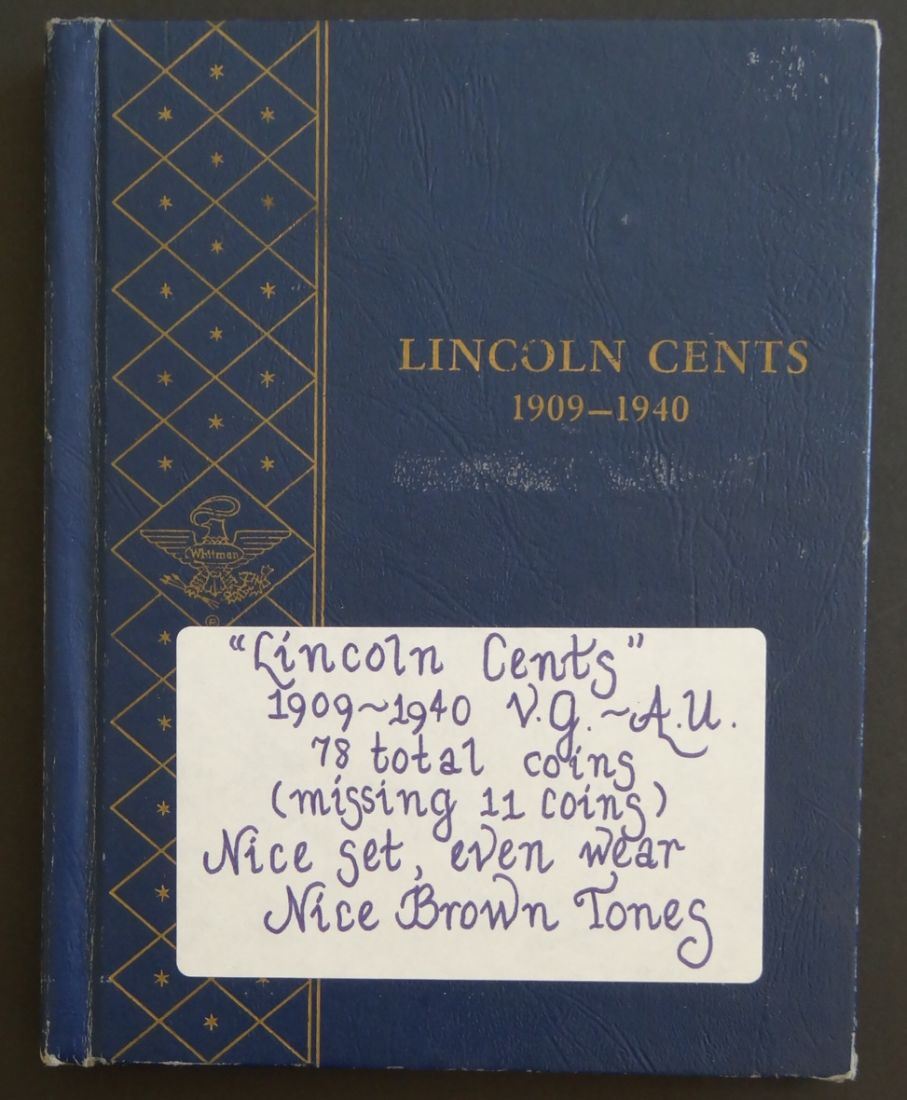 LINCOLN CENTS
1909–1940
Whitman
®
"Lincoln Cents"
1909~1940 V.G.~A.U.
78 total coins
(missing 11 coins)
Nice set, even wear
Nice Brown Tones